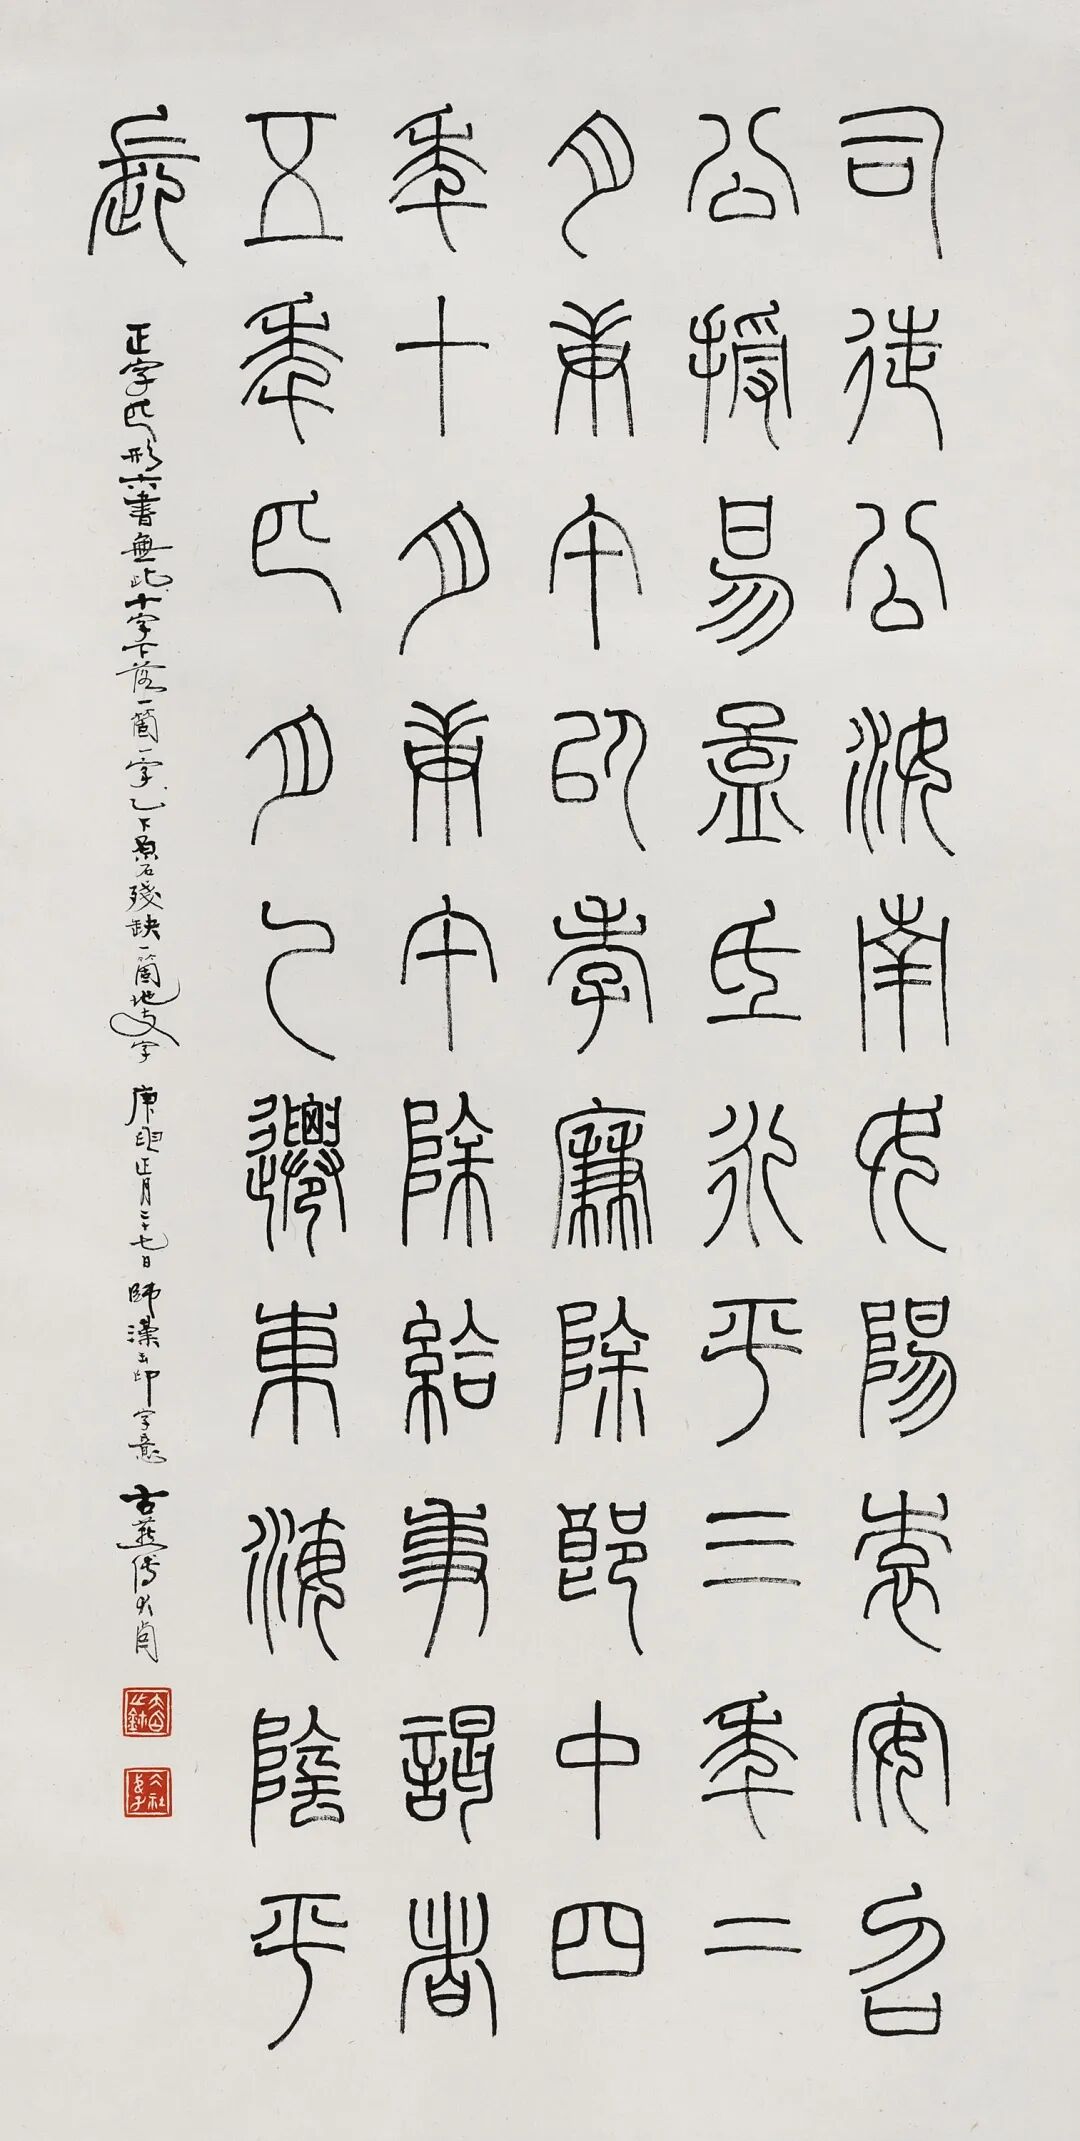 司徒公汝南女陽袁安召
公授易孟氏永平三年二
月庚午以孝廉除郎中四
年十月庚午除給事謁者
五年匹月乙遷東海陰平
長
正字匹形六書無此十字下落一箇一字乙下原石殘缺一箇地支字 庚申正月二十七日 師漢玉印字意 古燕傅大卣